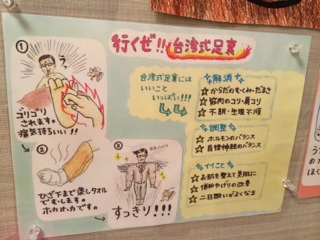 行くぜ!!台湾式足裏
①
ゴリゴリ
されます。
痛気持ちいい!!
②
ひざ下まで蒸しタオル
でむします。
ホカホカです。
③
すっきり!!!
台湾式足裏には
いいこと
いっぱい!!!
解消
☆からだのむくみ・だるさ
☆筋肉のコリ・肩コリ
☆不眠・生理不順
調整
☆ホルモンのバランス
☆自律神経のバランス
イイこと
☆お肌を整えて美肌に
☆便秘や下りの改善
☆二日酔いがよくなる